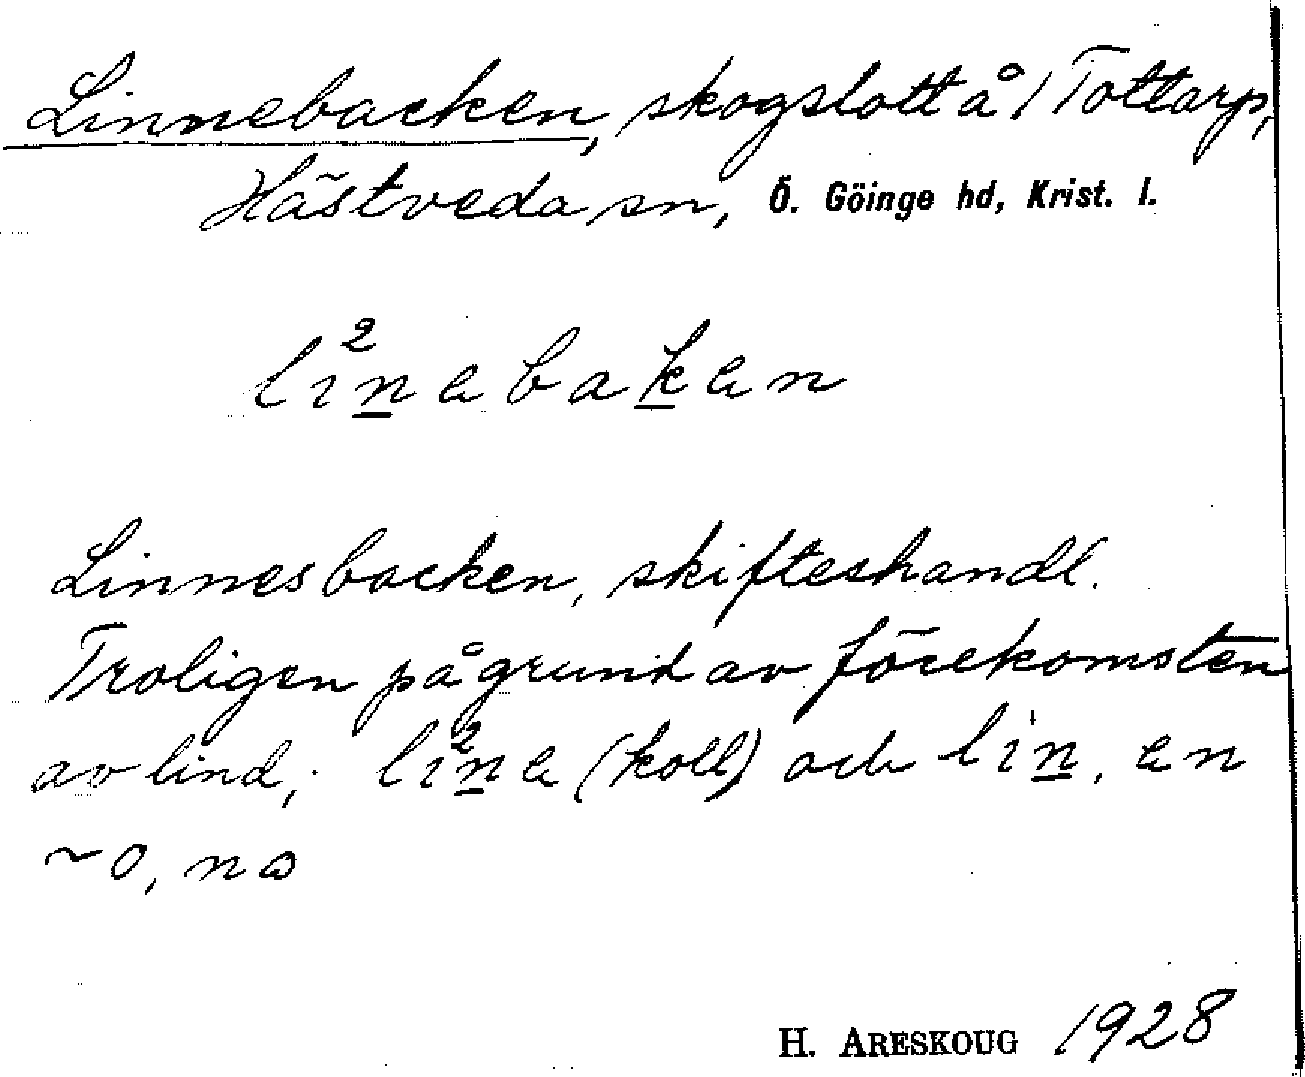 Linnebacken, skogslott å 1 Tottarp,
Hästveda sn, Ö. Göinge hd, Krist. l.
li²nəbakən
Linnesbacken, skifteshandl.
Troligen på grund av förekomsten
av lind; li²nə (koll) och li'n, en
~ o, na
H. ARESKOUG 1928